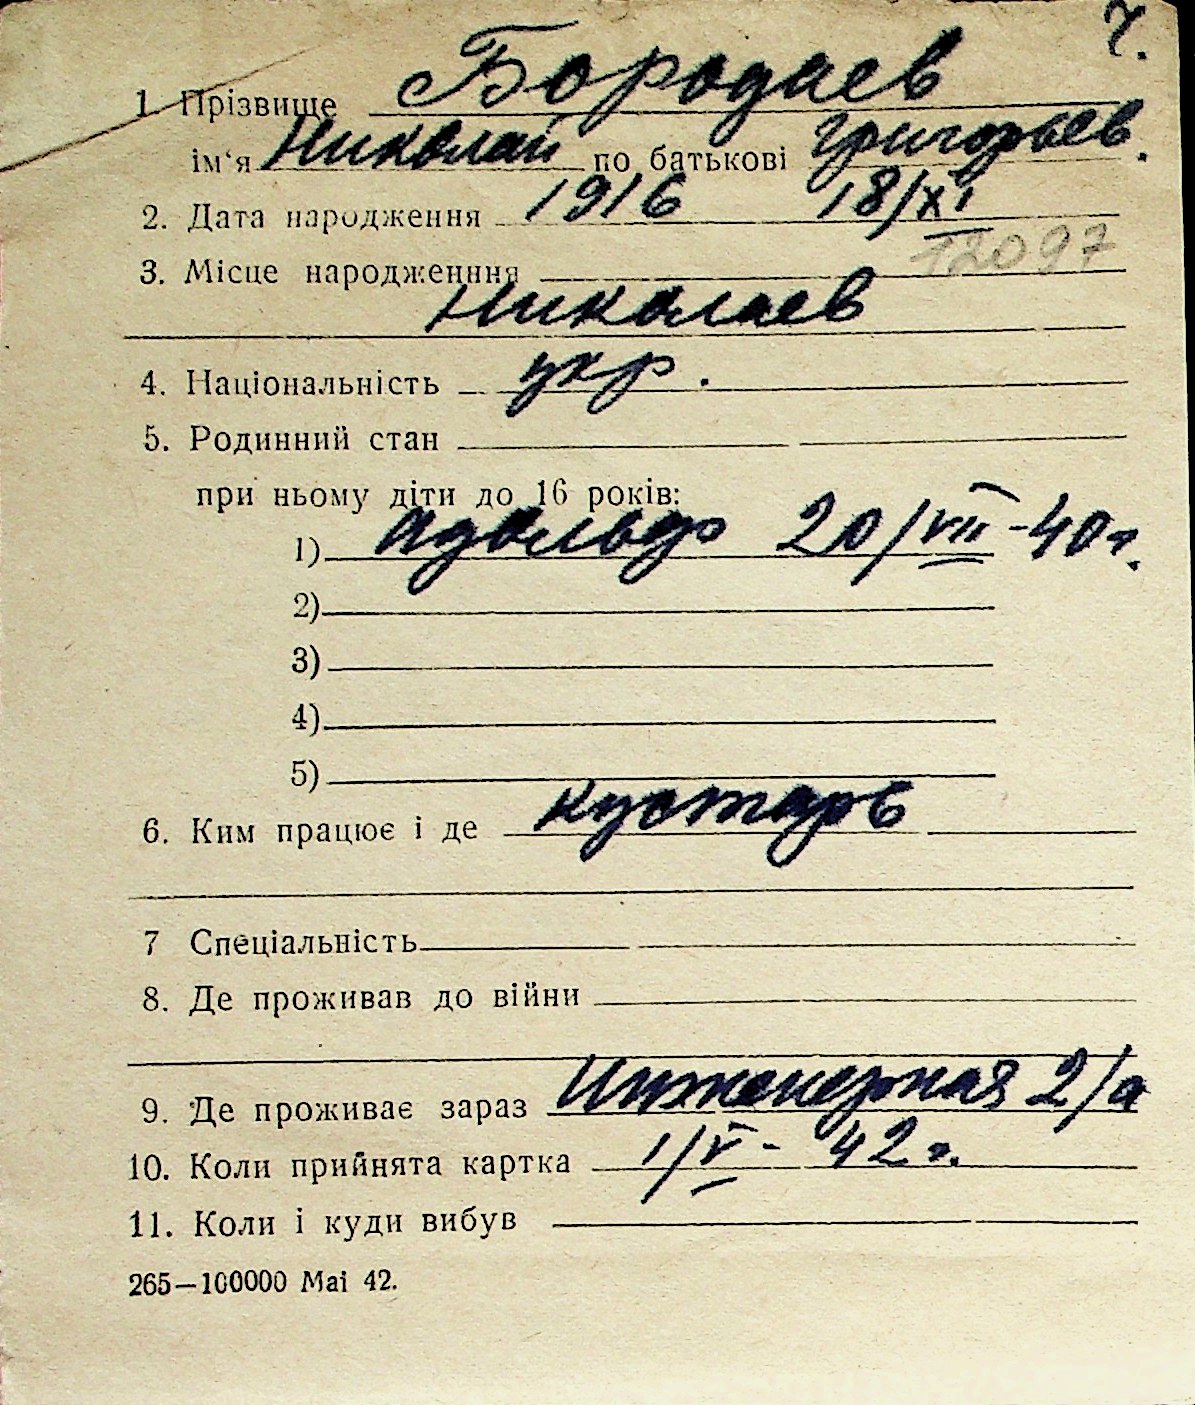 ч.
1. Прізвище Бородаев
ім‘я Николай по батькові Григорьев.
2. Дата народження 1916 18/XI
12097
3. Місце народженння
Николаев
4. Національність укр.
5. Родинний стан
при ньому діти до 16 років:
1) Адольф 20/VII-40г.
2)
3)
4)
5)
6. Ким працює і де кустарь
7 Спеціальність
8. Де проживав до війни
9. Де проживає зараз Инженерная 2/а
10. Коли прийнята картка 1/V- 42г.
11. Коли і куди вибув
265—100000 Mai 42.